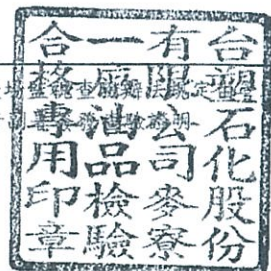 台塑石化股份
有限公司麥寮
一廠油品檢驗
合格專用印章